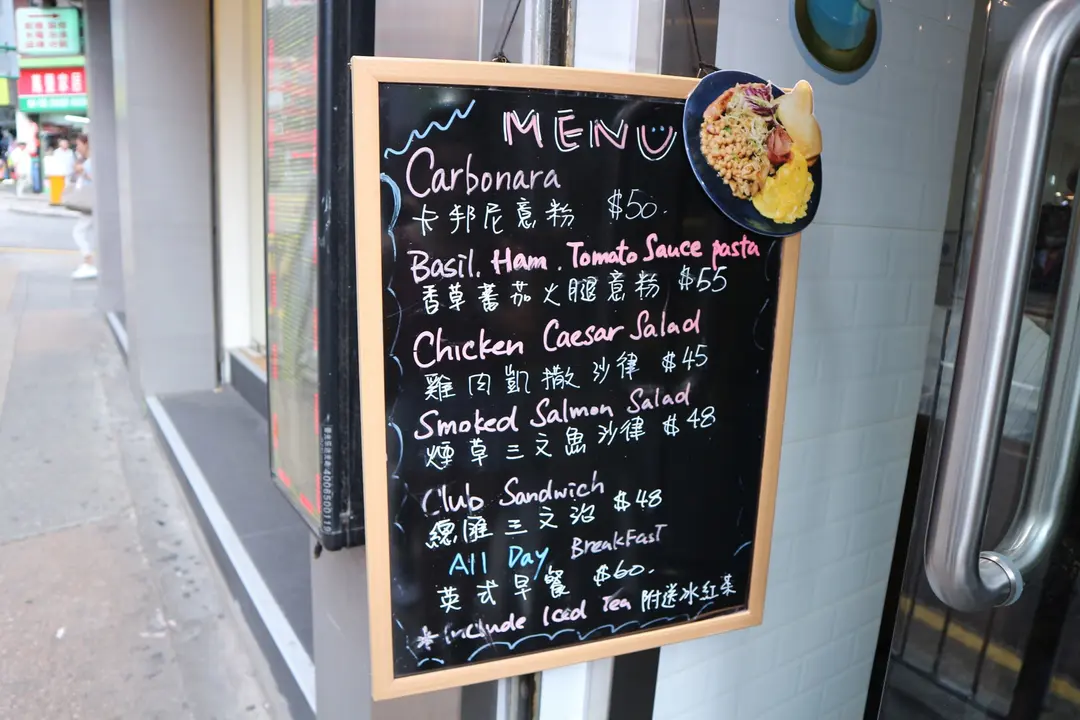 MENU
Carbonara
卡邦尼意粉 $50.
Basil. Ham. Tomato Sauce pasta
香草蕃茄火腿意粉 $55
Chicken Caesar Salad
雞肉凱撒沙律 $45
Smoked Salmon Salad
煙草三文魚沙律 $48
Club Sandwich
總匯三文治 $48
All Day BreakFast
英式早餐 $60.
*include Iced Tea 附送冰紅茶
4006500119